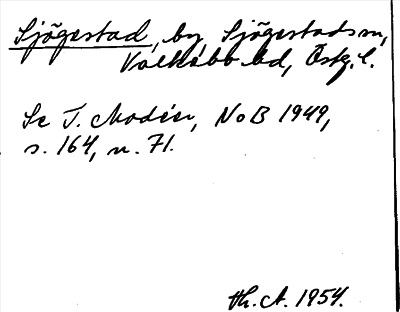 Sjögestad, by Sjögestads sn,
Valkebo hd, Östg. l.
Se T. Modéer, NoB 1949,
s. 164, n. 71.
Th. A. 1954.